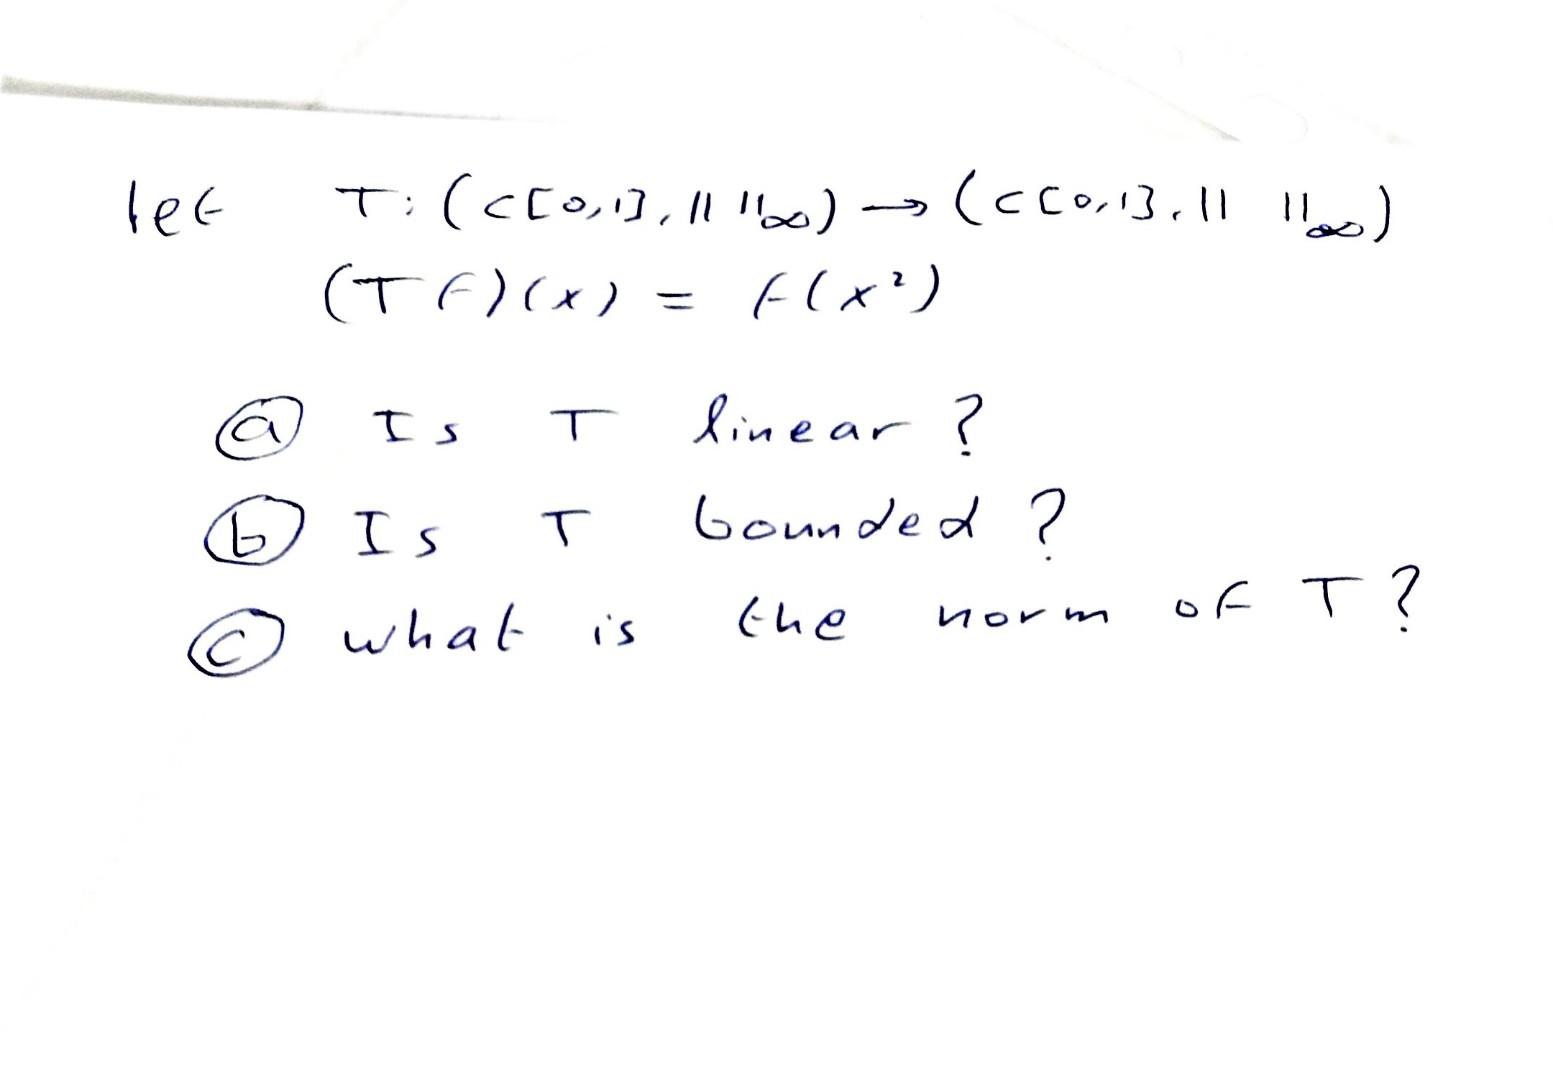 let T: (C[0,1], || ||∞) → (C[0,1], || ||∞)
(T f)(x) = f(x²)
(a) Is T linear?
(b) Is T bounded?
(c) what is the norm of T?